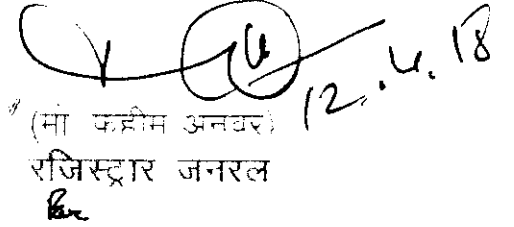 12.4.18
(मो फहीम अनवर)
रजिस्ट्रार जनरल